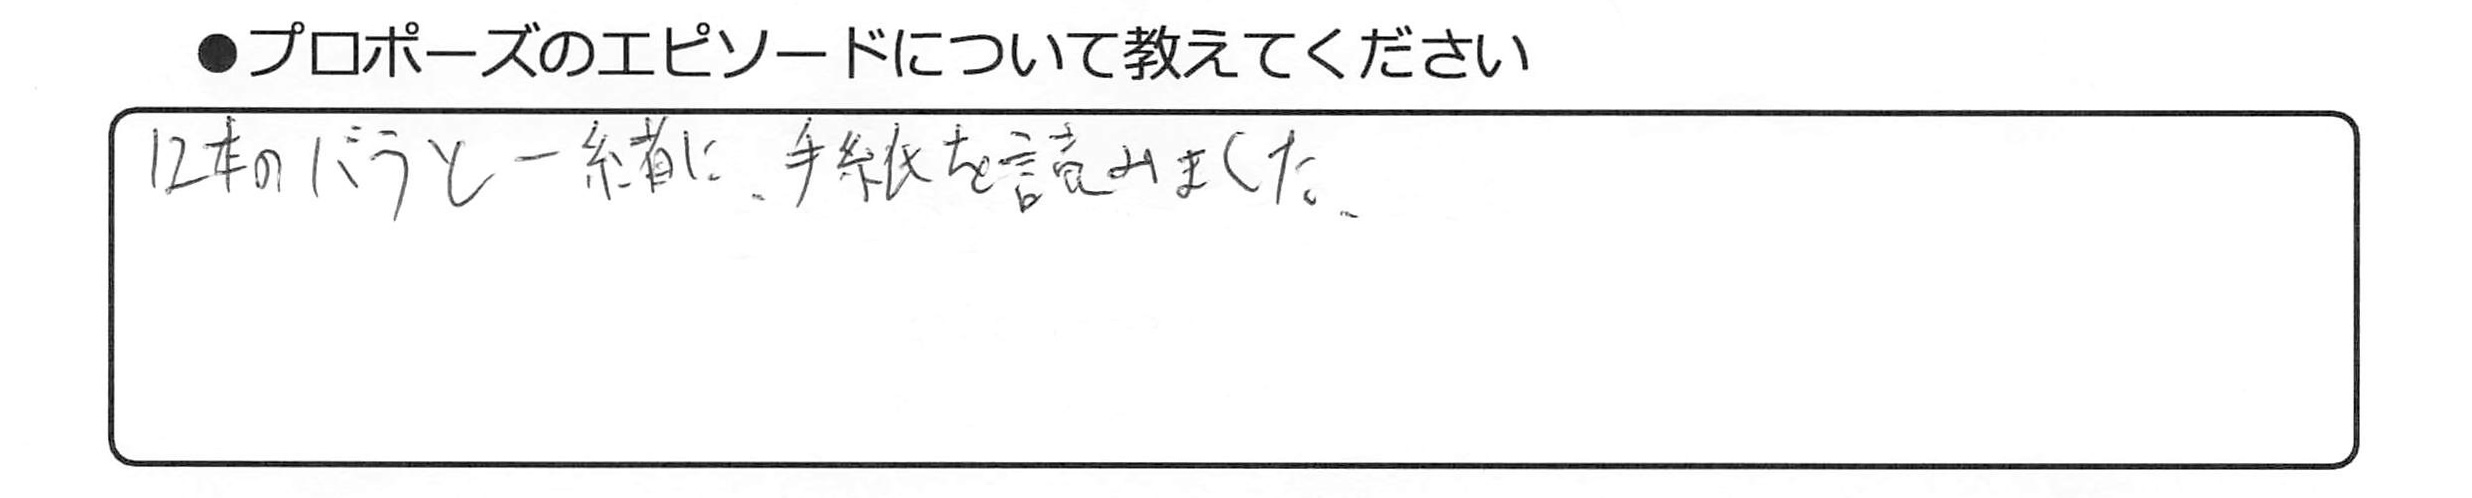 ●プロポーズのエピソードについて教えてください
12本のバラと一緒に、手紙を読みました、